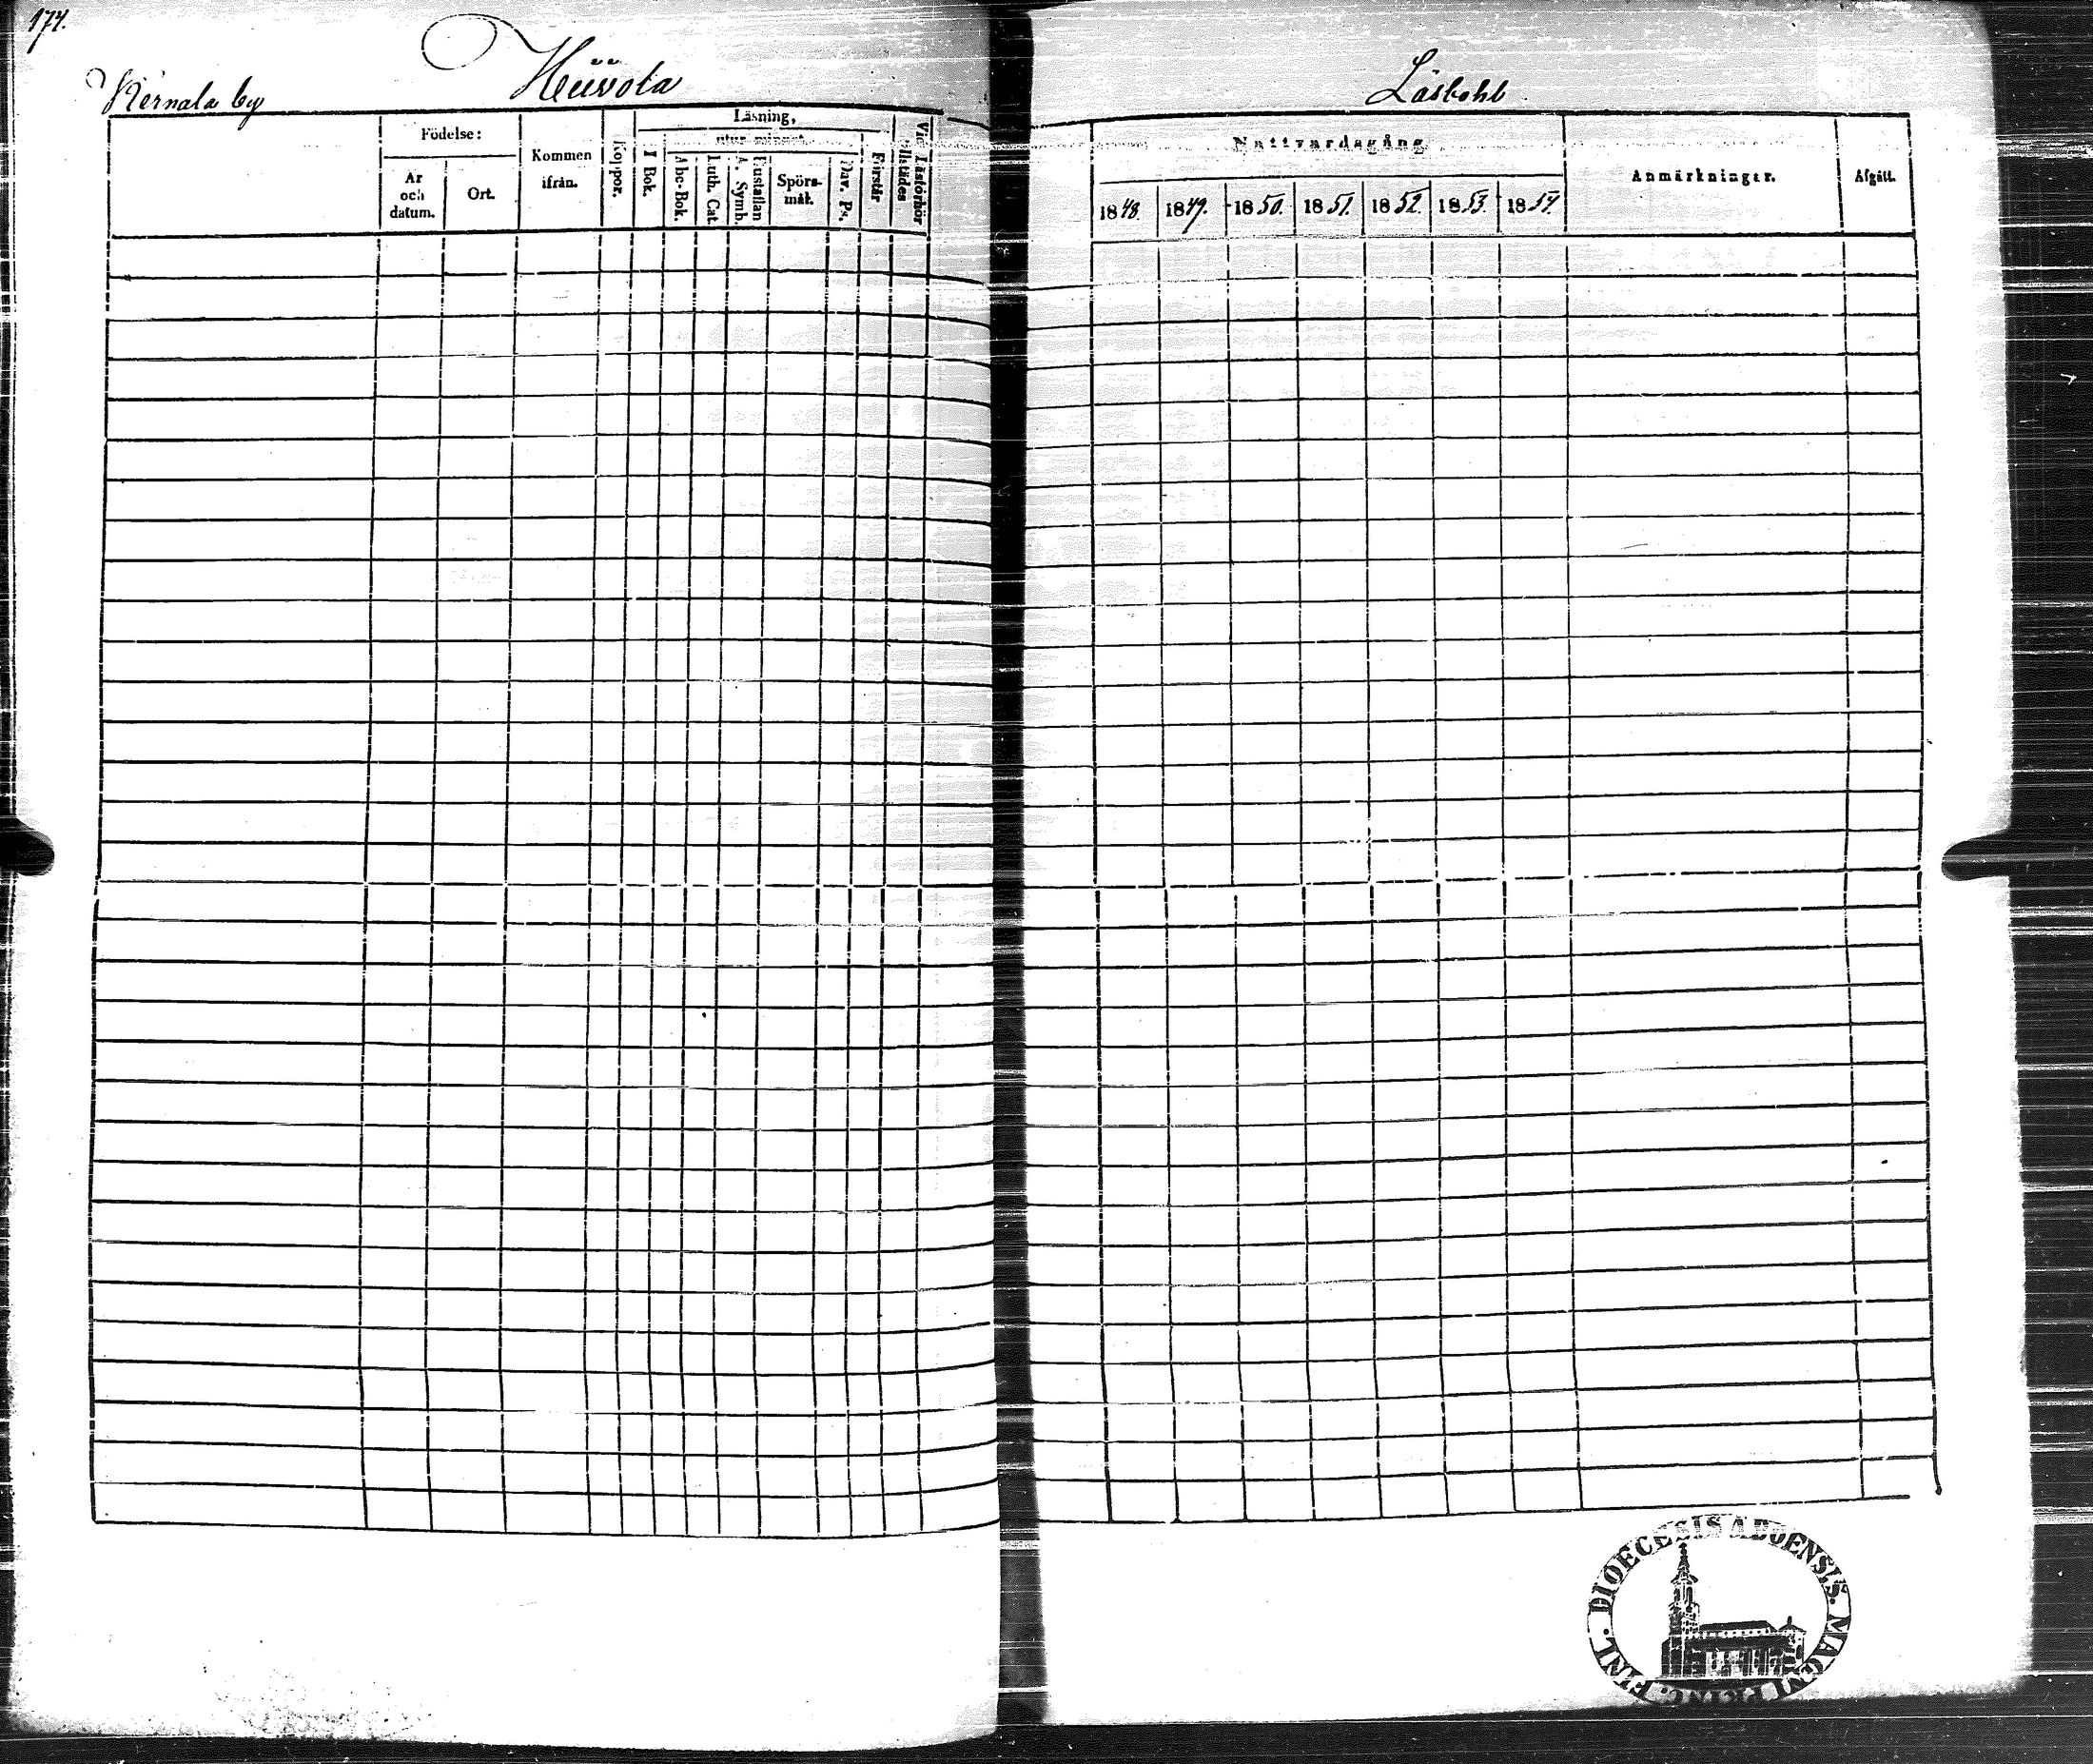 174.
Kernala by
Hüvola
Läsbohl
Födelse:
År
och
datum.
Ort.
Kommen
ifrån.
Koppor.
Läsning,
utur minnet.
I Bok.
Abc-Bok.
Luth. Cat.
A. Symb.
Hustaflan
Spörs-
mål.
Dav. Ps.
Förstår
Vid Läsförhör
tillstädes
Nattvardsgång
1848. 1849. 1850. 1851. 1852. 1853. 1854.
Anmärkningar.
Afgått.
DIOECESIS ABOENSIS. MAGNI PRINC. FINL.